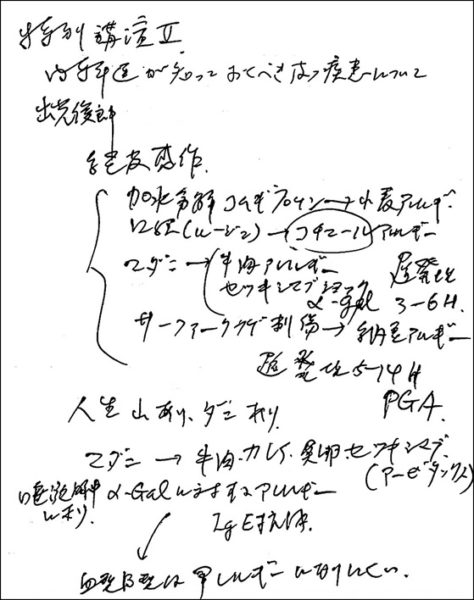 特別講演Ⅱ
内科医が知っておくべき 疾患について
出光俊郎
経皮感作
加水分解コムギ → 小麦アレルギー
口紅(ルージュ) → コチニールアレルギー
マダニ → 牛肉アレルギー
セツキシマブショック 遅発性
α-Gal 3-6H.
サーファークラゲ刺傷 → 納豆アレルギー
遅発性 5-14H
PGA
人生山あり、ダニあり.
マダニ → 牛肉.カレイ.魚卵.セツキシマブ
(アービタックス)
唾液 α-Galに対するアレルギー
IgE抗体.
血液B型はアレルギーになりにくい.